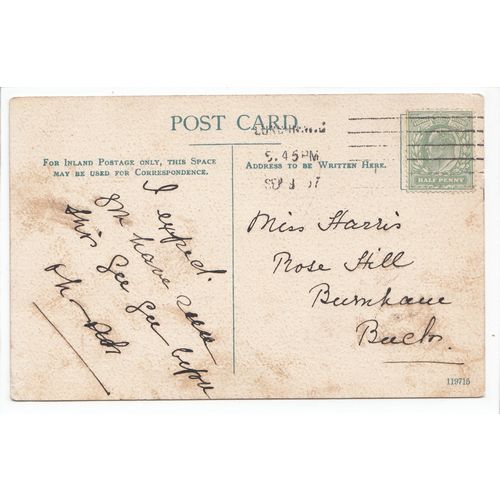 POST CARD.
FOR INLAND POSTAGE ONLY, THIS SPACE
MAY BE USED FOR CORRESPONDENCE.
ADDRESS TO BE WRITTEN HERE.
5.45PM
SEP 07
HALF PENNY
I expect.
you have seen
this Gee Gee before
Miss Harris
Rose Hill
Burnham
Bucks.
119715